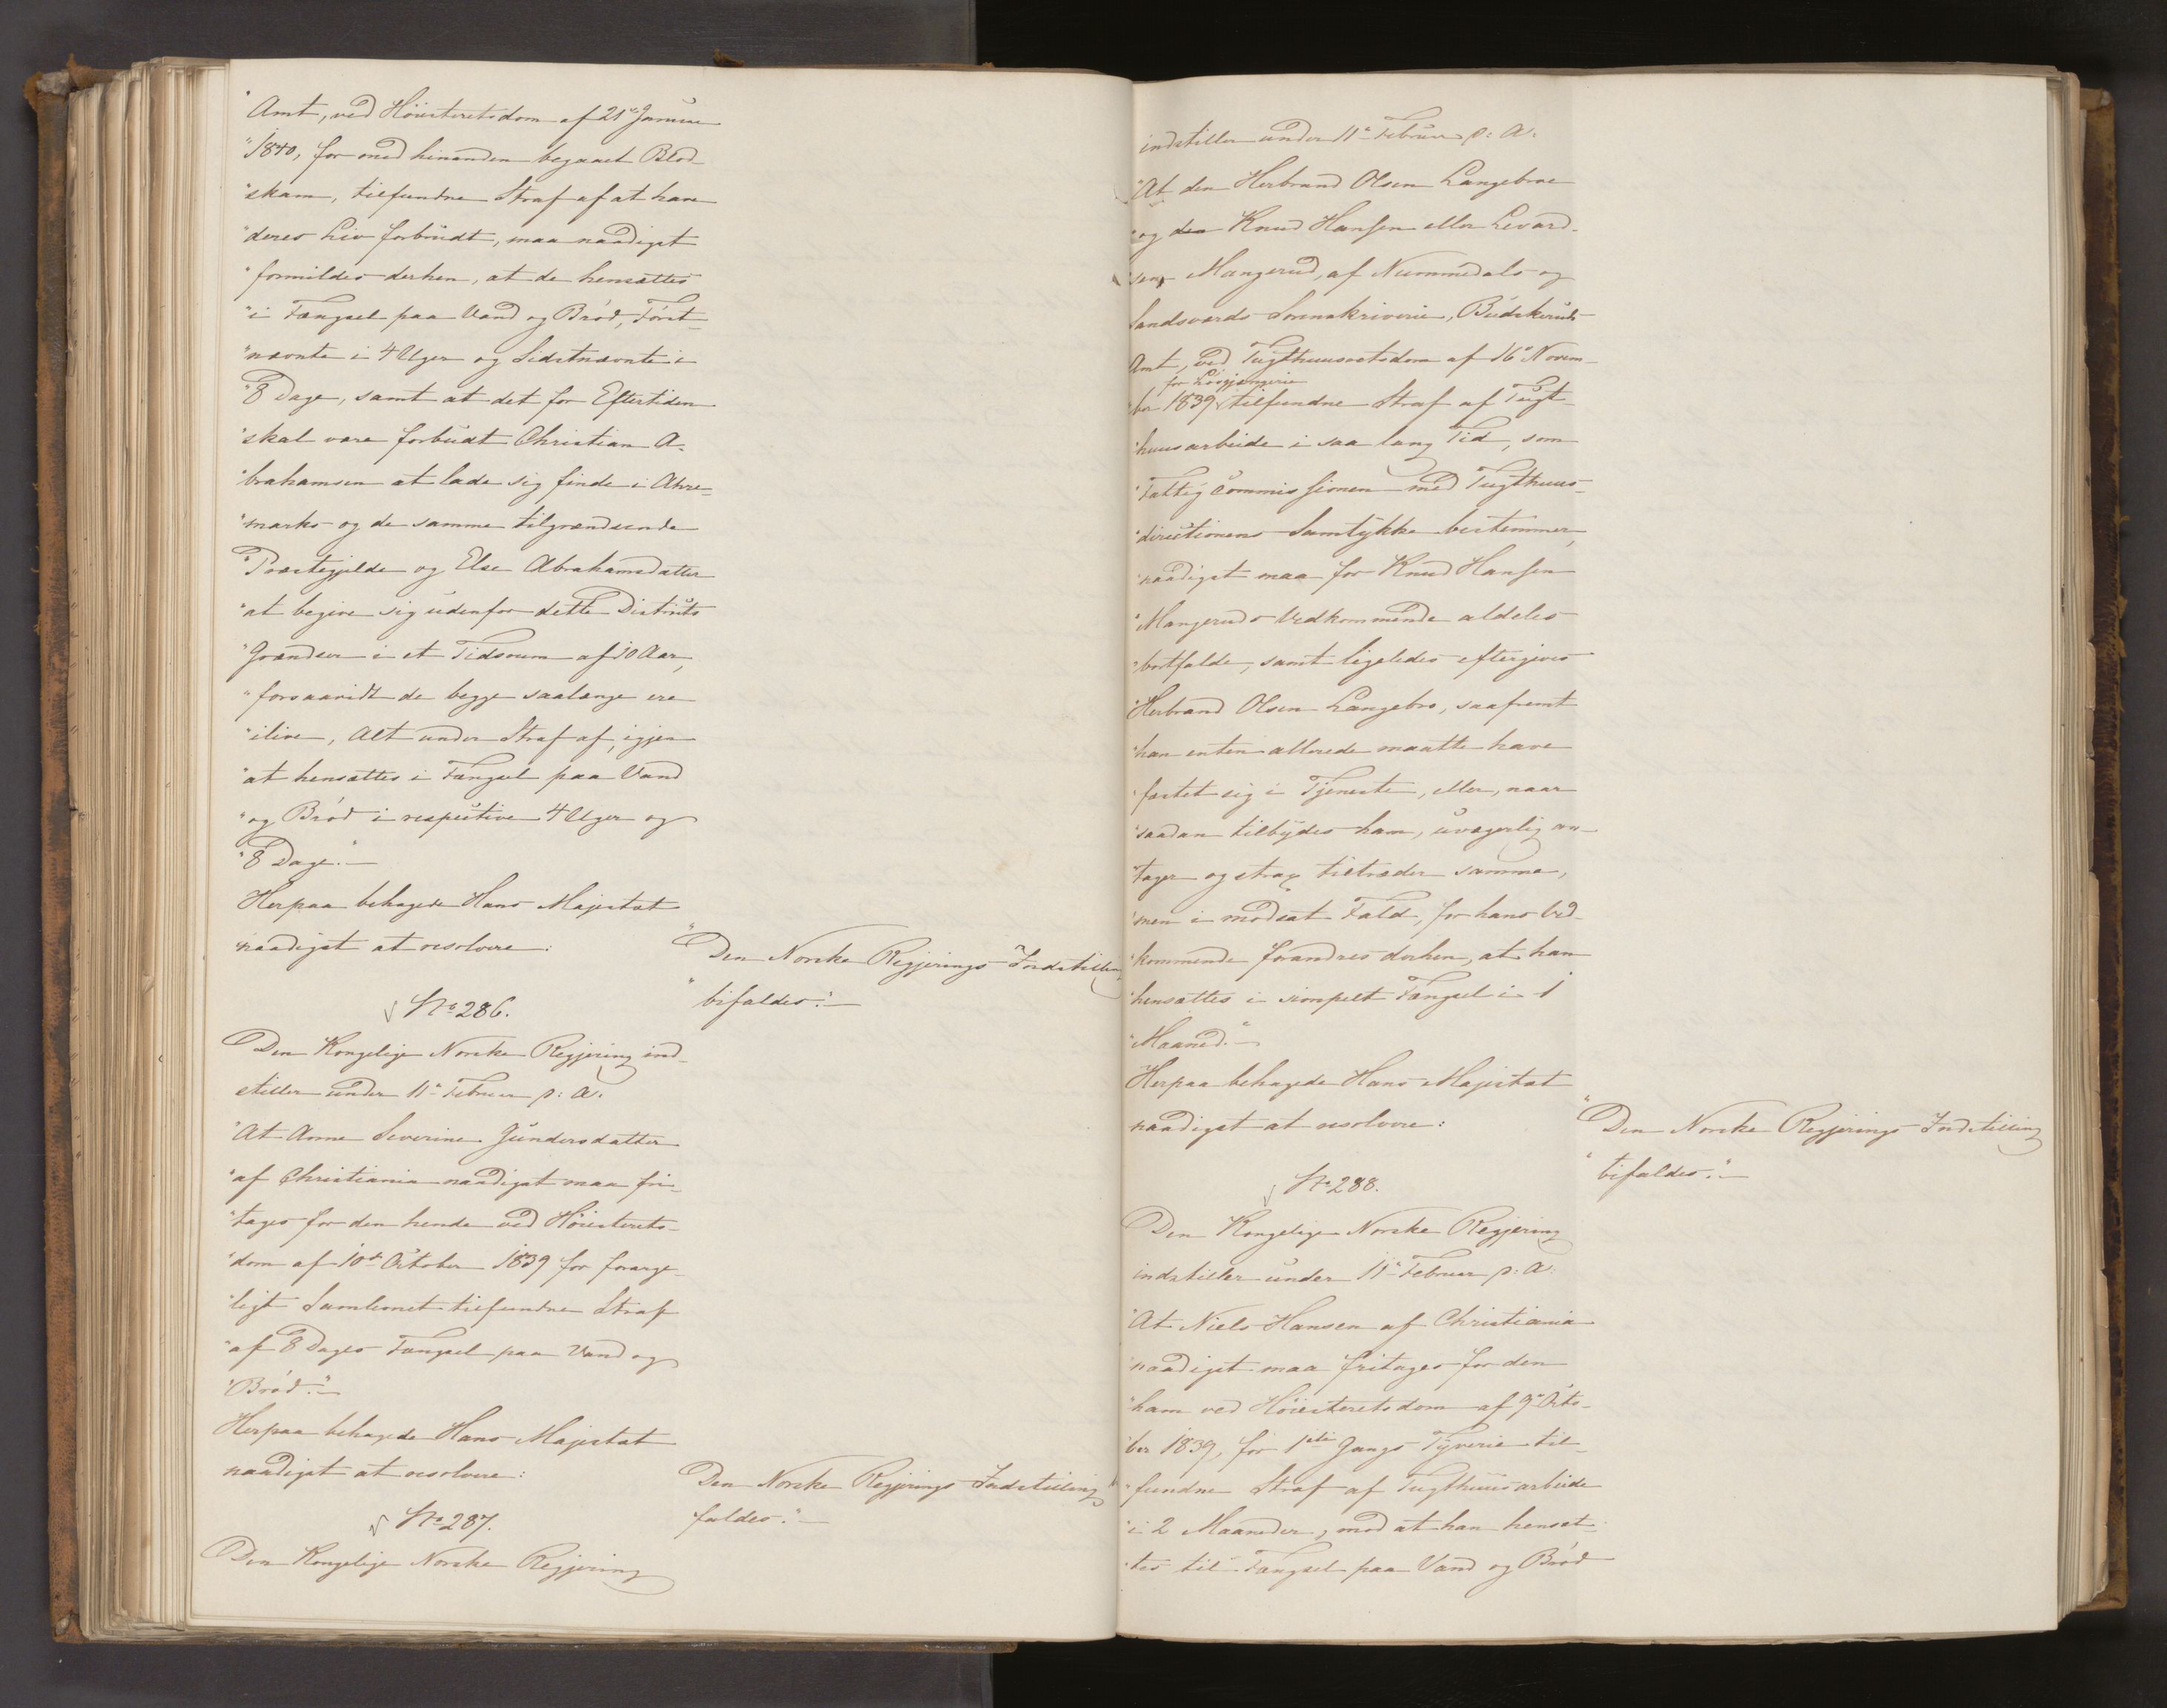 "Amt, ved Höiesteretsdom af 21de Januar
"1840, for med hinanden begaaet Blod-
"skam, tilfundne Straf af at have
"deres Liv forbrudt, maa naadigst
"formildes derhen, at de hensættes
"i Fængsel paa Vand og Bröd, Först-
"nævnte i 4 Uger og Sidstnævnte i
"8 Dage, samt at det for Eftertiden
"skal være forbudt Christian A-
"brahamsen at lade sig finde i Ahre-
"marks og de samme tilgrændsende
"Præstegjelde og Else Abrahamsdatter
"at begive sig udenfor dette Districts
"Grændser i et Tidsrum af 10 Aar,
"forsaavidt de begge saalænge ere
"ilive, Alt under Straf af, igjen
"at hensættes i Fængsel paa Vand
"og Bröd i respective 4 Uger og
"8 Dage."
Herpaa behagede Hans Majestæt
naadigst at resolvere:
"Den Norske Regjerings Indstilling
"bifaldes."
No 286.
Den Kongelige Norske Regjering ind-
stiller under 11te Februar p: A:
"At Anne Severine Gundersdatter
"af Christiania naadigst maa fri-
"tages for den hende ved Höiesterets-
"dom af 10de October 1839 for forarge-
"ligt Samlevnet tilfundne Straf
"af 8 Dages Fængsel paa Vand og
"Bröd."
Herpaa behagede Hans Majestæt
naadigst at resolvere:
Den Norske Regjerings Indstilling
faldes."
No 287.
Den Kongelige Norske Regjering
indstiller under 11te Februar p: A:
"At den Herbrand Olsen Langebroe
"og den Knud Hansen eller Levard-
"sen Mangerud, af Nummedals og
Sandsværds Sorenskriverie, Budskeruds
Amt, ved Tugthuusretsdom af 16de Novem-
for Lösgjængerie
"ber 1839 tilfundne Straf af Tugt-
"huusarbeide i saa lang Tid, som
"Fattigcommissionen med Tugthuus-
"directionens Samtykke bestemmer,
"naadigst maa for Knud Hansen
"Mangeruds Vedkommende aldeles
"bortfalde, samt ligeledes eftergives
"Herbrand Olsen Langebro, saafremt
"han enten allerede maatte have
"fæstet sig i Tjeneste, eller, naar
"saadan tilbydes ham, uvægerlig an-
"tager og strax tiltræder samme,
"men i modsat Fald, for hans Ved-
"kommende forandres derhen, at han
"hensættes i simpelt Fængsel i 1
"Maaned."
Herpaa behagede Hans Majestæt
naadigst at resolvere:
"Den Norske Regjerings Indstilling
"bifaldes."
No 288.
Den Kongelige Norske Regjering
indstiller under 11te Februar p: A:
"At Niels Hansen af Christiania
"naadigst maa fritages for den
"ham ved Höiesteretsdom af 9de Octo-
"ber 1839, for 1ste Gangs Tyverie til-
"fundne Straf af Tugthuusarbeide
"i 2 Maaneder, mod at han hensæt-
"tes til Fængsel paa Vand og Bröd